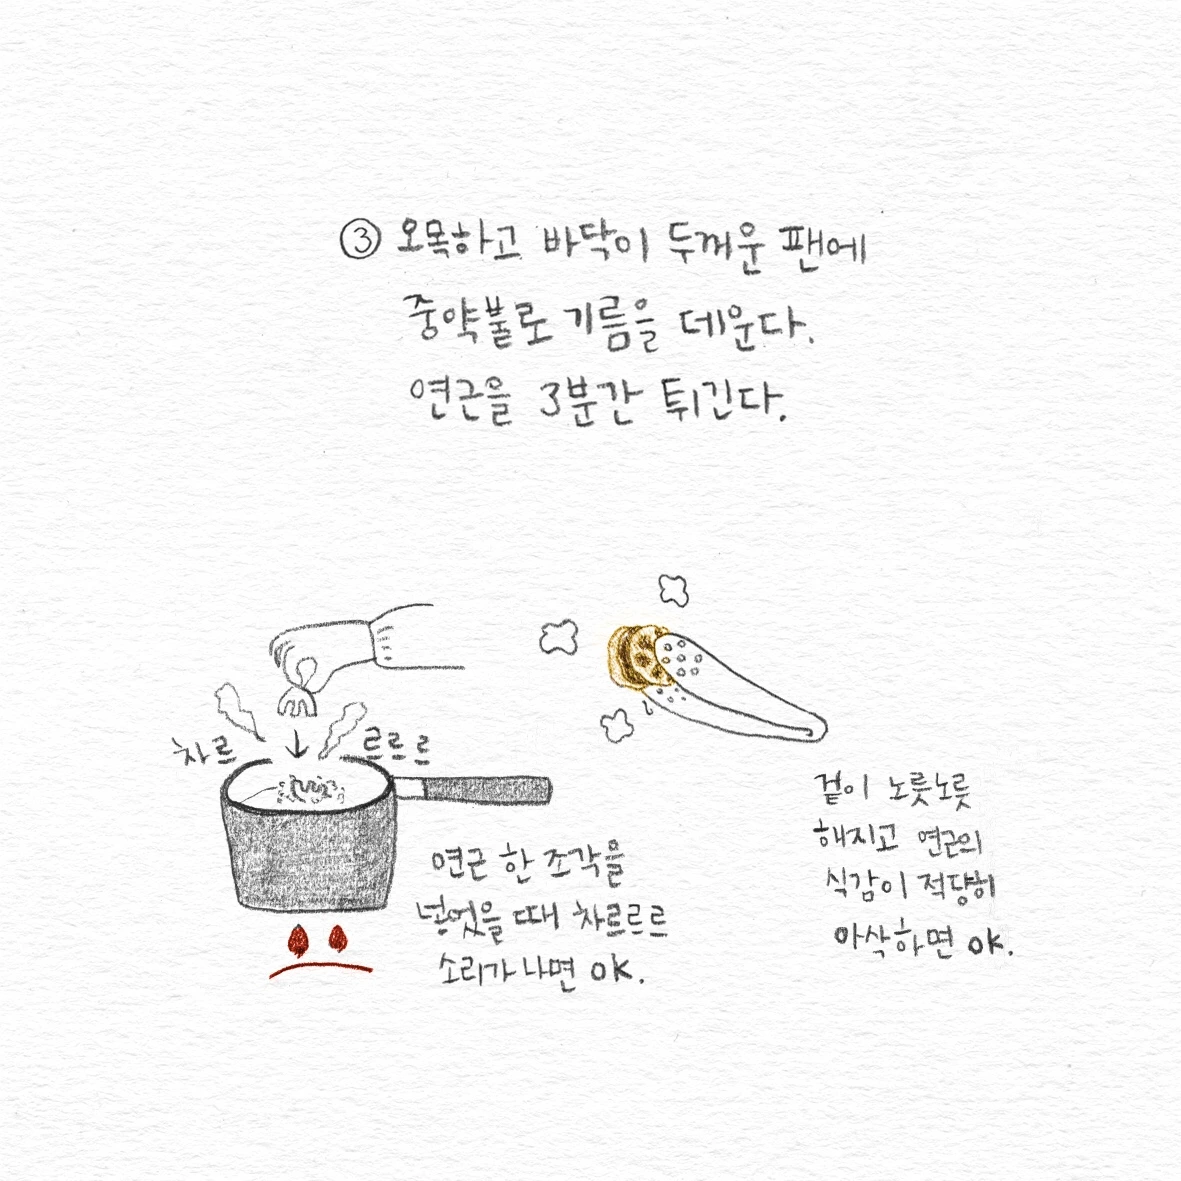 ③ 오목하고 바닥이 두꺼운 팬에
중약불로 기름을 데운다.
연근을 3분간 튀긴다.
차르
르르르
연근 한 조각을
넣었을 때 차르르르
소리가 나면 OK.
겉이 노릇노릇
해지고 연근의
식감이 적당히
아삭하면 OK.